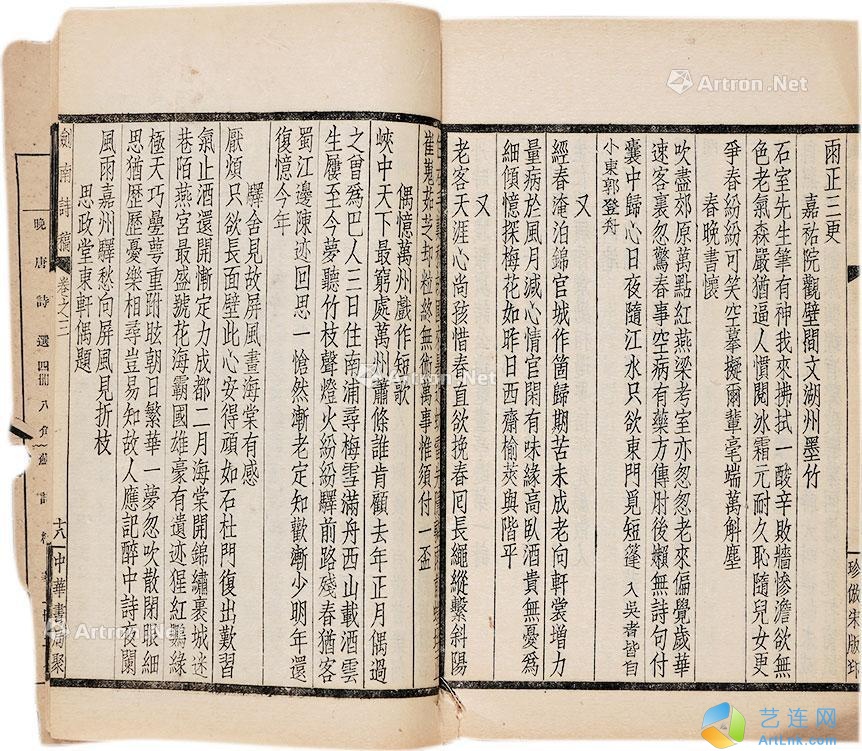 珍倣宋版印
雨正三更
嘉祐院觀壁間文湖州墨竹
石室先生筆有神我來拂拭一酸辛敗牆慘澹欲無
色老氣森嚴猶逼人慣閱冰霜元耐久恥隨兒女更
爭春紛紛可笑空摹擬爾輩毫端萬斛塵
春晚書懷
吹盡郊原萬點紅燕梁考室亦忽忽老來偏覺歲華
速客裏忽驚春事空病有藥方傳肘後嬾無詩句付
囊中歸心日夜隨江水只欲東門覓短篷 入吳者皆自
小東郭登舟
又
經春淹泊錦官城作箇歸期苦未成老向軒裳增力
量病於風月減心情官閑有味緣高臥酒貴無憂爲
細傾憶探梅花如昨日西齋榆莢與階平
又
老客天涯心尚孩惜春直欲挽春回長繩縱繫斜陽
崔嵬茹芝却粒終無術萬事惟須付一盃
偶憶萬州戲作短歌
峽中天下最窮處萬州蕭條誰肯顧去年正月偶過
之曾爲巴人三日住南浦尋梅雪滿舟西山載酒雲
生屨至今夢聽竹枝聲燈火紛紛驛前路殘春猶客
蜀江邊陳迹回思一愴然漸老定知歡漸少明年還
復憶今年
驛舍見故屏風畫海棠有感
厭煩只欲長面壁此心安得頑如石杜門復出歎習
氣止酒還開慚定力成都二月海棠開錦繡裹城迷
巷陌燕宮最盛號花海霸國雄豪有遺迹猩紅鸚綠
極天巧疊萼重跗眩朝日繁華一夢忽吹散閉眼細
思猶歷歷憂樂相尋豈易知故人應記醉中詩夜闌
風雨嘉州驛愁向屏風見折枝
思政堂東軒偶題
劍南詩稿 卷之三
十八 中華書局聚
晚唐詩選四冊八
Artron.Net
Artron.Net
Artron.Net
Artron.Net
艺连网
ArtLnk.com